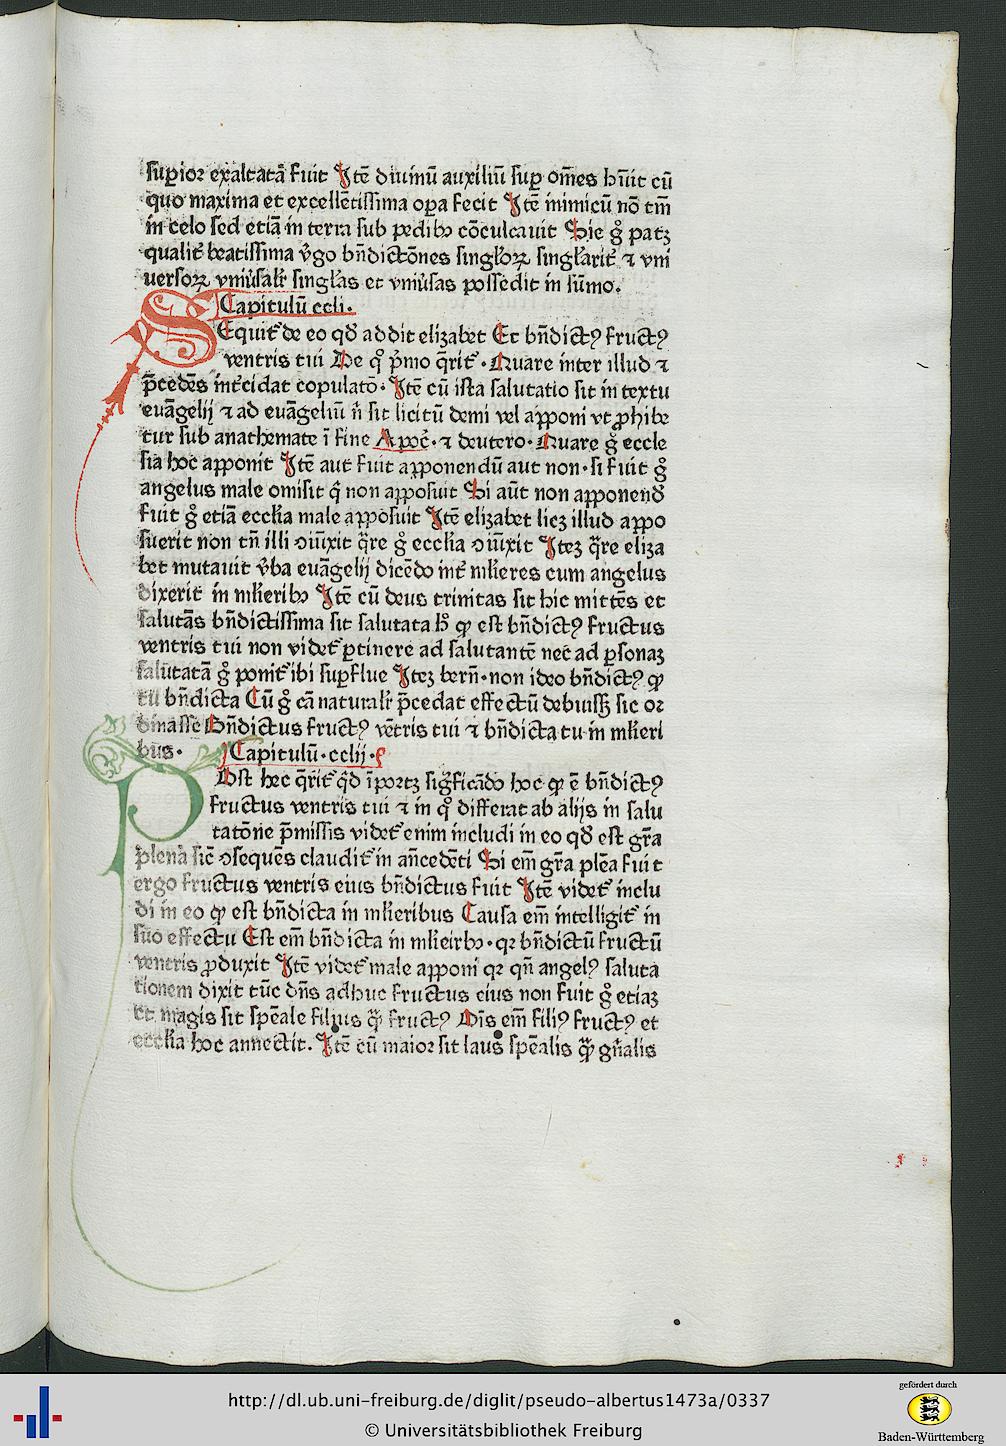 suꝑior exaltatā fuit Itē diuinū auxiliū suꝑ om̄es hūit cū
quo maxima et excellētissima oꝑa fecit Itē inimicū nō tm̄
in celo sed etiā in terra sub pedibꝫ cōculcauit Sic g̊ patꝫ
qualit̄ beatissima v̄go bn̄dictōnes singl̓oꝝ singl̓arit̄ ⁊ vni
uersoꝝ vniūsalr̄ singl̓as et vniūsas possedit in sūmo.
Capitulū ccli.
SEquit̄ de eo qd̄ addit elizabet Et bn̄dictꝰ fructꝰ
ventris tui De qͦ p̄mo q̄rit̄ . Quare inter illud ⁊
p̄cedēs int̄cidat copulatō. Itē cū ista salutatio sit in textu
euāgelij ⁊ ad euāgeliū n̄ sit licitū demi vel apponi vt ꝓhibe
tur sub anathemate ī fine Apoc̄. ⁊ deutero. Quare g̊ eccle
sia hoc apponit Itē aut fuit apponendū aut non. si fuit g̊
angelus male omisit q̄ non apposuit Si aūt non apponend̄
fuit g̊ etiā eccl̓ia male apposuit Itē elizabet licꝫ illud appo
suerit non tn̄ illi ꝯiūxit q̄re g̊ eccl̓ia ꝯiūxit Iteꝫ q̄re eliza
bet mutauit v̄ba euāgelij dicēdo int̄ ml̓ieres cum angelus
dixerit in ml̓ieribꝫ Itē cū deus trinitas sit hic mittēs et
salutās bn̄dictissima sit salutata hͦ ꝙ est bn̄dictꝰ fructus
ventris tui non videt̄ ꝑtinere ad salutantē nec ad ꝑsonaꝫ
salutatā g̊ ponit̄ ibi suꝑflue Iteꝫ bern̄. non ideo bn̄dictꝰ ꝙ
tu bn̄dicta Cū g̊ cā naturalr̄ p̄cedat effectū debuisꝫ sic or
dinasse Bn̄dictus fructꝰ vētris tui ⁊ bn̄dicta tu in ml̓ieri
bus. Capitulū. cclij.
POst hec q̄rit̄ qͥd īportꝫ significādo hoc ꝙ ē bn̄dictꝰ
fructus ventris tui ⁊ in qͦ differat ab alijs in salu
tatōne p̄missis videt̄ enim includi in eo qd̄ est gr̄a
plena sic̄ ꝯsequēs claudit̄ in an̄cedēti Si em̄ gr̄a plēa fuit
ergo fructus ventris eius bn̄dictus fuit Itē videt̄ inclu
di in eo ꝙ est bn̄dicta in ml̓ieribus Causa em̄ intelligit̄ in
suo effectu Est em̄ bn̄dicta in ml̓ieirbꝫ. qꝛ bn̄dictū fructū
ventris ꝓduxit Itē videt̄ male apponi qꝛ qn̄ angelꝰ saluta
tionem dixit tūc dn̄s adhuc fructus eius non fuit g̊ etiaꝫ
Et magis sit spēale filius qͣꝫ fructꝰ Oīs em̄ filiꝰ fructꝰ et
eccl̓ia hoc annectit. Itē cū maior sit laus spēalis qͣꝫ gn̄alis
http://dl.ub.uni-freiburg.de/diglit/pseudo-albertus1473a/0337
© Universitätsbibliothek Freiburg
gefördert durch
Baden-Württemberg